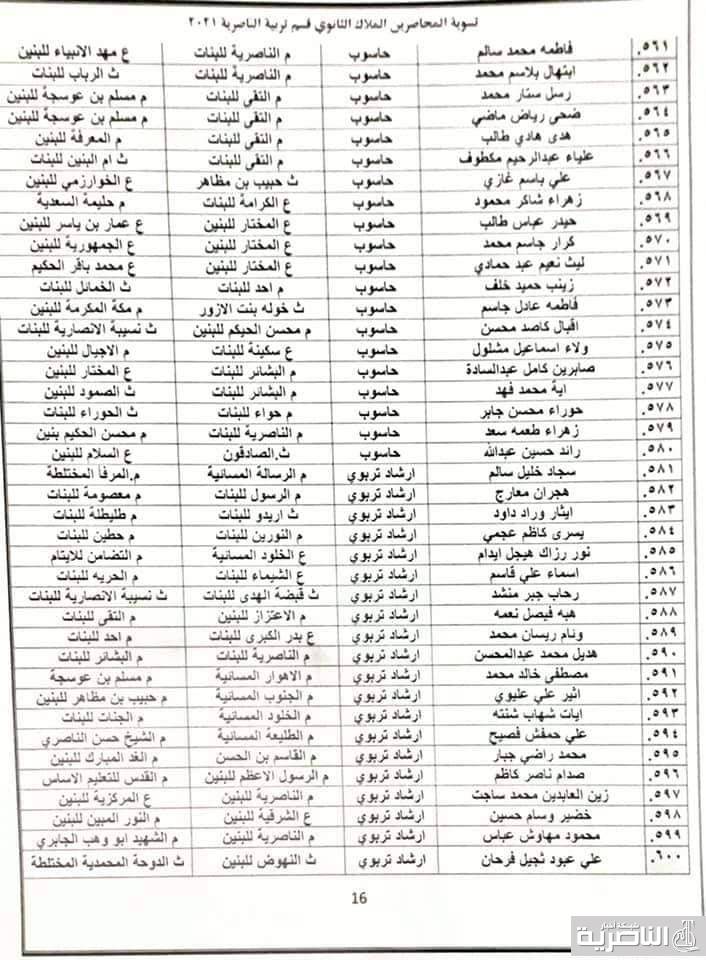 تسوية المحاضرين الملاك الثانوي قسم تربية الناصرية ٢٠٢١
٥٦١. فاطمه محمد سالم حاسوب م الناصرية للبنات ع مهد الانبياء للبنين
٥٦٢. ابتهال بلاسم محمد حاسوب م الناصرية للبنات ث الرباب للبنات
٥٦٣. رسل ستار محمد حاسوب م التقى للبنات م مسلم بن عوسجة للبنين
٥٦٤. ضحى رياض ماضي حاسوب م التقى للبنات م مسلم بن عوسجة للبنين
٥٦٥. هدى هادي طالب حاسوب م التقى للبنات م المعرفة للبنين
٥٦٦. علياء عبدالرحيم مكطوف حاسوب م التقى للبنات ث ام البنين للبنات
٥٦٧. علي باسم غازي حاسوب ث حبيب بن مظاهر ع الخوارزمي للبنين
٥٦٨. زهراء شاكر محمود حاسوب ع الكرامة للبنات م حليمة السعدية
٥٦٩. حيدر عباس طالب حاسوب ع المختار للبنين ع عمار بن ياسر للبنين
٥٧٠. كرار جاسم محمد حاسوب ع المختار للبنين ع الجمهورية للبنين
٥٧١. ليث نعيم عبد حمادي حاسوب ع المختار للبنين ع محمد باقر الحكيم
٥٧٢. زينب حميد خلف حاسوب م احد للبنات ث الخمائل للبنات
٥٧٣. فاطمه عادل جاسم حاسوب ث خوله بنت الازور م مكة المكرمة للبنين
٥٧٤. اقبال كاصد محسن حاسوب م محسن الحكيم للبنين ث نسيبة الانصارية للبنات
٥٧٥. ولاء اسماعيل مشلول حاسوب ع سكينة للبنات م الاجيال للبنين
٥٧٦. صابرين كامل عبدالسادة حاسوب م البشائر للبنات ع المختار للبنين
٥٧٧. اية محمد فهد حاسوب م البشائر للبنات ث الصمود للبنين
٥٧٨. حوراء محسن جابر حاسوب م حواء للبنات ث الحوراء للبنات
٥٧٩. زهراء طعمه سعد حاسوب م الناصرية للبنات م محسن الحكيم بنين
٥٨٠. رائد حسين عبدالله حاسوب ث.الصادقون ع السلام للبنين
٥٨١. سجاد خليل سالم ارشاد تربوي م الرسالة المسائية م.المرفأ المختلطة
٥٨٢. هجران معارج ارشاد تربوي م الرسول للبنات م معصومة للبنات
٥٨٣. ايثار وراد داود ارشاد تربوي ث اريدو للبنات م طليطلة للبنات
٥٨٤. يسرى كاظم عجمي ارشاد تربوي م النورين للبنات م حطين للبنات
٥٨٥. نور رزاك هيجل ايدام ارشاد تربوي ع الخلود المسائية م التضامن للايتام
٥٨٦. اسماء علي قاسم ارشاد تربوي ع الشيماء للبنات م الحريه للبنات
٥٨٧. رحاب جبر منشد ارشاد تربوي ث قبضة الهدى للبنات ث نسيبة الانصارية للبنات
٥٨٨. هبه فيصل نعمه ارشاد تربوي م الاعتزاز للبنين م التقى للبنات
٥٨٩. ونام ريسان محمد ارشاد تربوي ع بدر الكبرى للبنات م احد للبنات
٥٩٠. هديل محمد عبدالمحسن ارشاد تربوي م الناصرية للبنات م البشائر للبنات
٥٩١. مصطفى خالد محمد ارشاد تربوي م الاهوار المسائية م مسلم بن عوسجة
٥٩٢. اثير علي عليوي ارشاد تربوي م الجنوب المسائية م حبيب بن مظاهر للبنين
٥٩٣. ايات شهاب شنته ارشاد تربوي م الخلود المسائية م الجنات للبنات
٥٩٤. علي حمفش فصيح ارشاد تربوي م الطليعة المسائية م الشيخ حسن الناصري
٥٩٥. محمد راضي جبار ارشاد تربوي م القاسم بن الحسن م الغد المبارك للبنين
٥٩٦. صدام ناصر كاظم ارشاد تربوي م الرسول الاعظم للبنين م القدس للتعليم الاساس
٥٩٧. زين العابدين محمد ساجت ارشاد تربوي م الناصرية للبنين ع المركزية للبنين
٥٩٨. خضير وسام حسين ارشاد تربوي ع الشرقية للبنين م النور المبين للبنين
٥٩٩. محمود مهاوش عباس ارشاد تربوي م الناصرية للبنين م الشهيد ابو وهب الجابري
٦٠٠. علي عبود ثجيل فرحان ارشاد تربوي ث النهوض للبنين ث الدوحة المحمدية المختلطة
16
شبكة اخبار
الناصرية